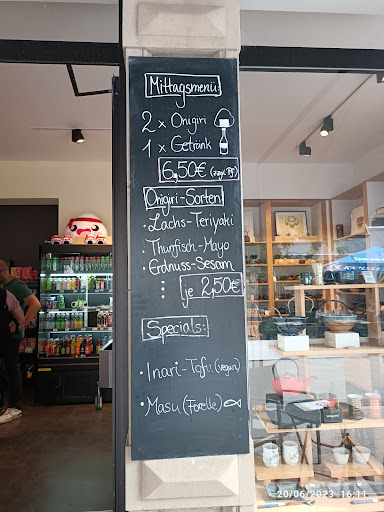 Mittagsmenü:
2 x Onigiri
1 x Getränk
6,50€ (zzgl. Pf)
Onigiri-Sorten:
• Lachs-Teriyaki
• Thunfisch-Mayo
• Erdnuss-Sesam
je 2,50€
Specials:
• Inari-Tofu (vegan)
• Masu (Forelle)
20/06/2023 16:11